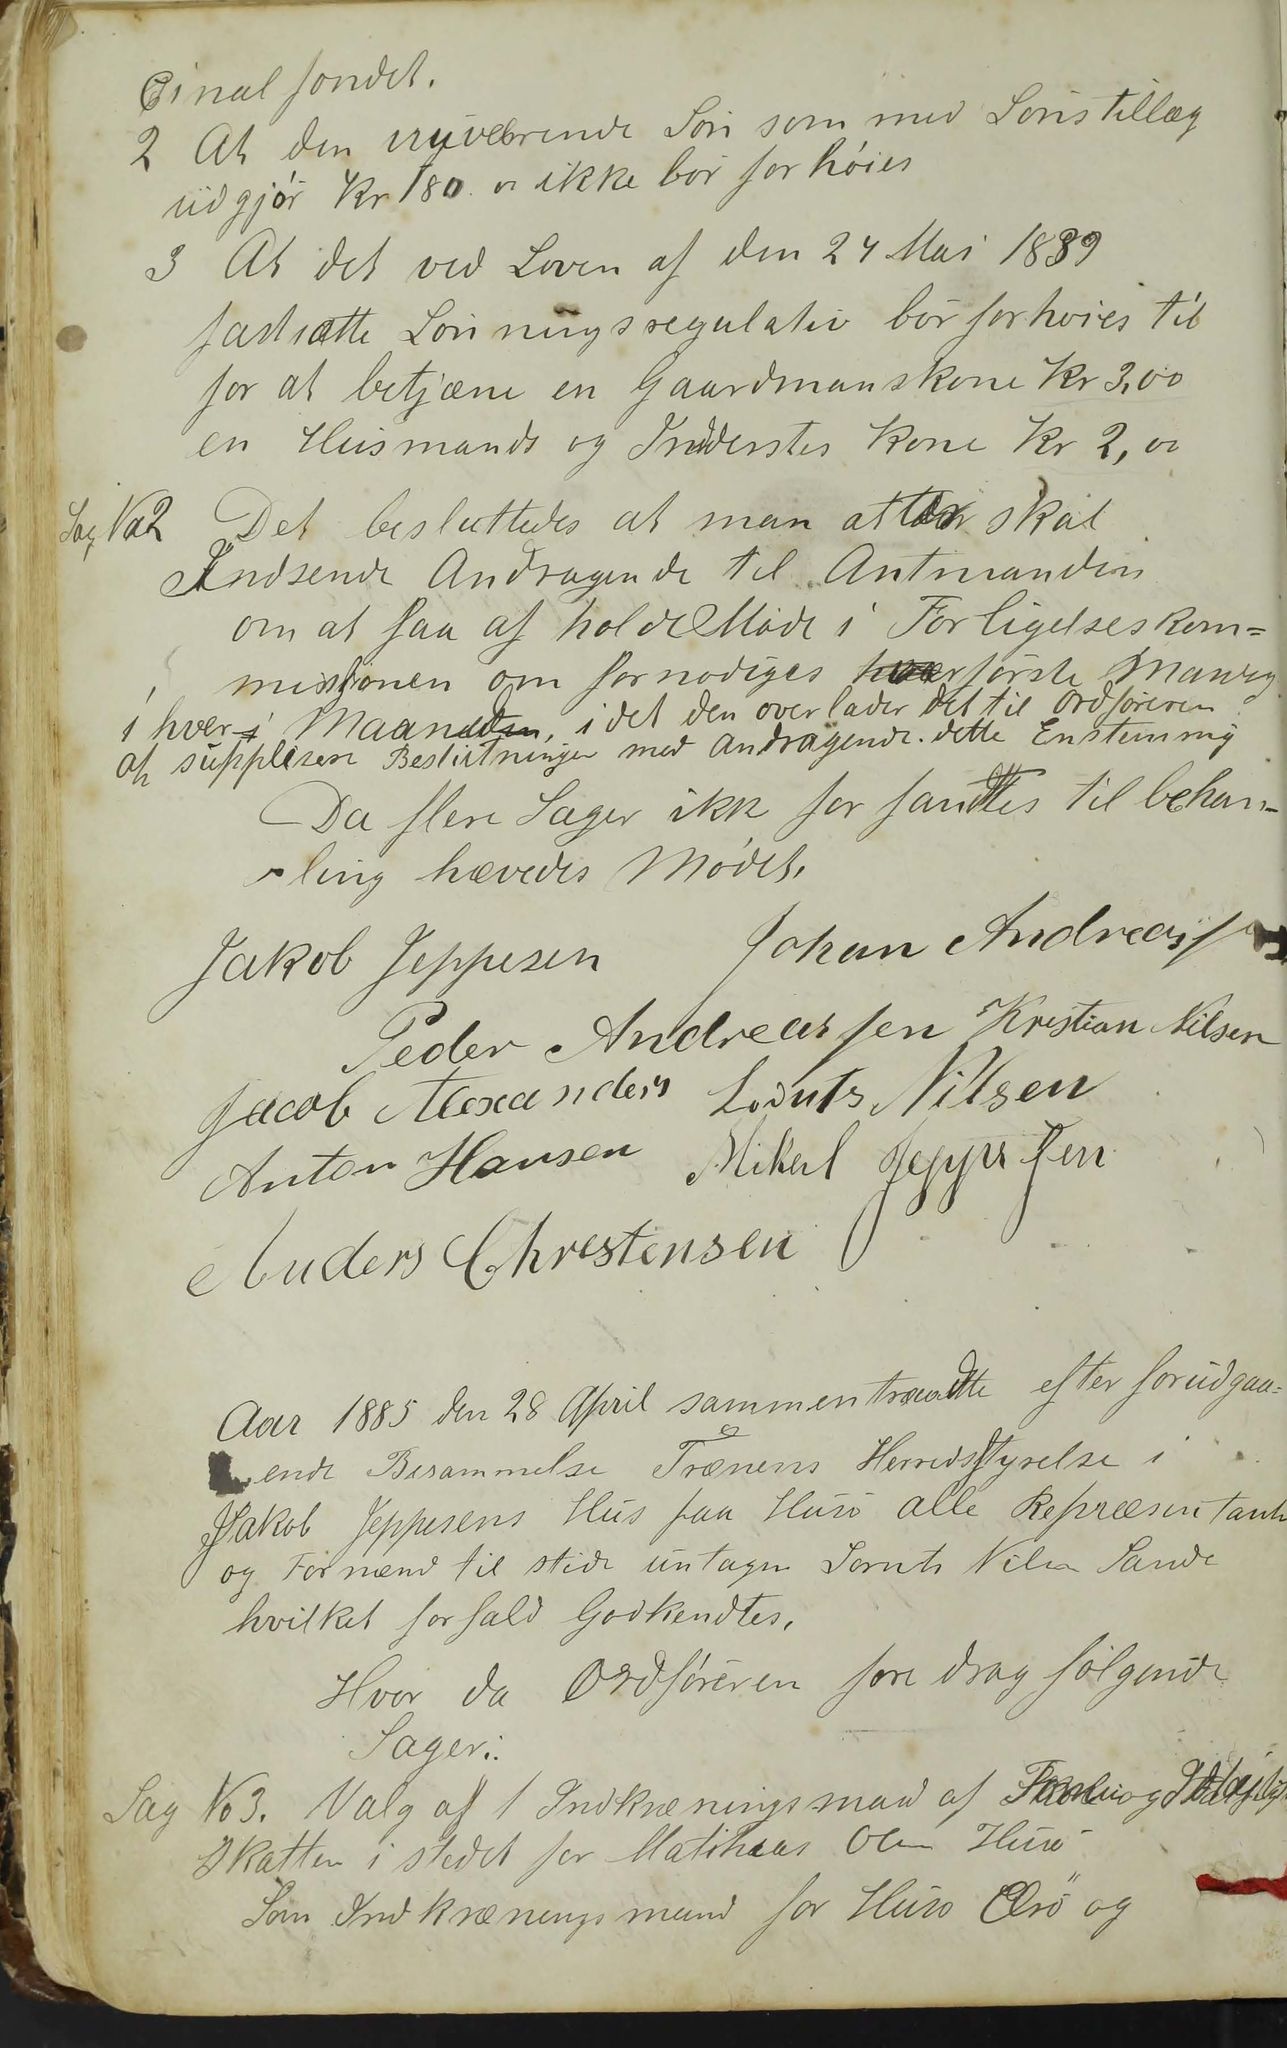 Cinal fondet.
2 At den nuværende Løn som med Lønstillæg
udgjør Kr 180 00 ikke bør forhøies
3 At det ved Loven af den 24 Mai 1839
fastsætte Lønningsregulativ bør forhøies til
for at betjæne en Gaardmanskone Kr 3,00
en Husmands og Inderstes Kone Kr 2,00
Sag No 2 Det besluttedes at man atter skal
Indsende Andragende til Amtmanden
om at faa af holde Møde i Forligelseskom=
missionen om fornødiges første Mandag
i hver Maaneden, idet den overlader det til Ordføreren
at supplisere Beslutningen med andragende. dette Enstemmig
Da flere Sager ikke for fandtes til behan-
ling hævedes Mødet.
Jakob Jeppesen Johan Andreassen
Peder Andreassen Kristian Nilsen
Jacob Alexanders Lorents Nilsen
Anton Hansen Mikal Jeppessen
Anders Chrestensen
Aar 1885 den 28 April sammentraadte efter forudgaa=
ende Berammelse Trænens Herredsstyrelse i
Jakob Jeppesens Hus paa Husø alle Repræsentante
og Formænd til stide untagen Lornts Nilsen Sande
hvilket forfald Godkendtes.
Hvor da Ordføreren fore drag følgende
Sager:
Sag No 3. Valg af 1 Indkrævningsmand af og
Skatten i stedet for Mathias Olsen Husø
Som Indkrævningsmand for Husø og